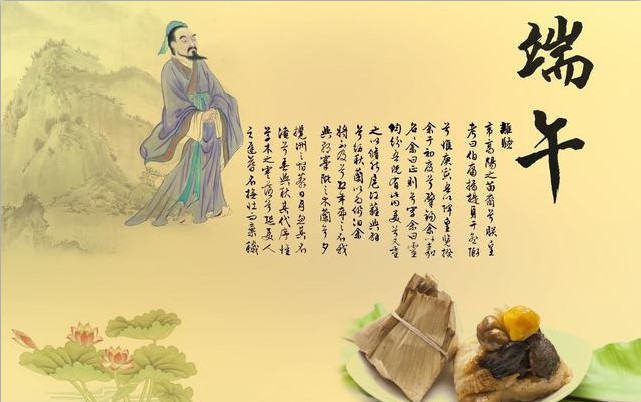 端午
離騷
帝高陽之苗裔兮朕皇
考曰伯庸攝提貞于孟陬
兮惟庚寅吾以降皇覽揆
余于初度兮肇錫余以嘉
名名余曰正則兮字余曰靈
均紛吾既有此內美兮又重
之以脩能扈江離與辟
芷兮紉秋蘭以為佩汩余
將不及兮恐年歲之不我
與朝搴阰之木蘭兮夕
攬洲之宿莽日月忽其不
淹兮春與秋其代序惟
草木之零落兮恐美人
之遲暮不撫壯而棄穢